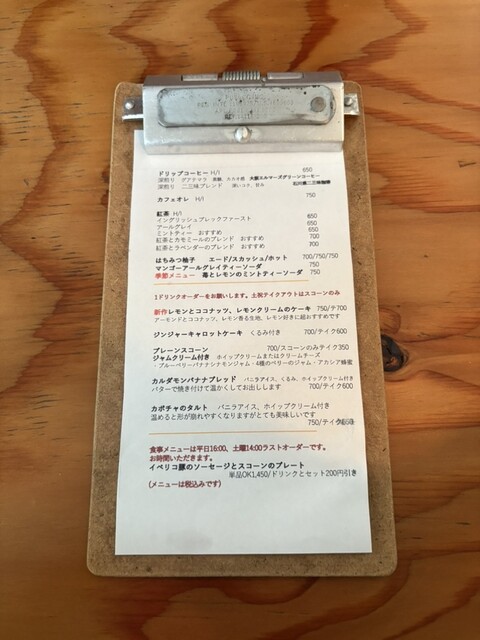 ドリップコーヒー H/I 650
深煎り グアテマラ 大阪エルマーズグリーンコーヒー
深煎り 二三味ブレンド 深いコク、甘み 石川県二三味珈琲
カフェオレ H/I 750
紅茶 H/I
イングリッシュブレックファースト 650
アールグレイ 650
ミントティー おすすめ 650
紅茶とカモミールのブレンド おすすめ 700
紅茶とラベンダーのブレンド おすすめ 700
はちみつ柚子 エード/スカッシュ/ホット 700/750/750
マンゴーアールグレイティーソーダ 750
季節メニュー 苺とレモンのミントティーソーダ 750
1ドリンクオーダーをお願いします。土祝テイクアウトはスコーンのみ
新作レモンとココナッツ、レモンクリームのケーキ 750/テ700
アーモンドとココナッツ、レモン香る生地、レモン好きに超おすすめです
ジンジャーキャロットケーキ くるみ付き 700/テイク600
プレーンスコーン 700/スコーンのみテイク350
ジャムクリーム付き ホイップクリームまたはクリームチーズ
・ブルーベリーバナナシナモンジャム・4種のベリーのジャム・アカシア蜂蜜
カルダモンバナナブレッド バニラアイス、くるみ、ホイップクリーム付き
バターで焼き付けて温かくしてお出しします 700/テイク600
カボチャのタルト バニラアイス、ホイップクリーム付き
温めると形が崩れやすくなりますがとても美味しいです
750/テイク650
食事メニューは平日16:00、土曜14:00ラストオーダーです。
お時間いただきます。
イベリコ豚のソーセージとスコーンのプレート
単品OK1,450/ドリンクとセット200円引き
(メニューは税込みです)